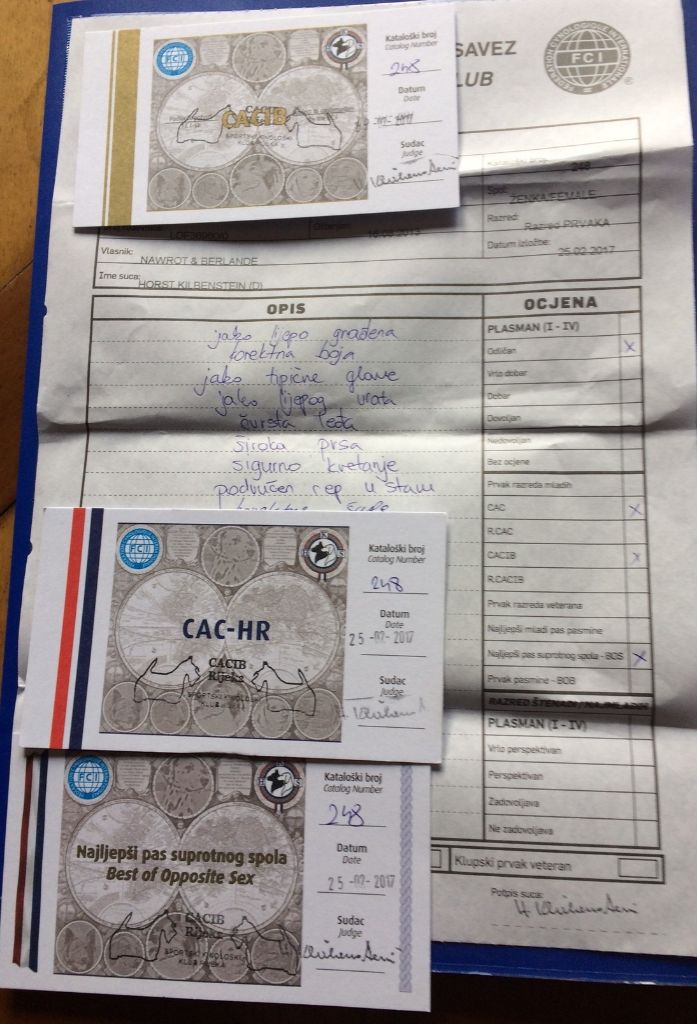 SAVEZ
LUB
FCI
FCI
Kataloški broj
Catalog Number
248
Datum
Date
2017
Sudac
Judge
CACIB
248
Spol:
ŽENKA/FEMALE
Razred:
Razred PRVAKA
Datum izložbe:
25.02.2017
Vlasnik:
NAWROT & BERLANDE
Ime suca:
HORST KILBENSTEIN (D)
OPIS
jako lijepo građena
korektna boja
jako tipične glave
jako lijepog vrata
čvrsta leđa
široka prsa
sigurno kretanje
podvučen rep u stavu
OCJENA
PLASMAN (I - IV)
Odličan X
Vrlo dobar
Dobar
Dovoljan
Nedovoljan
Bez ocjene
Prvak razreda mladih
CAC X
R.CAC
CACIB X
R.CACIB
Prvak razreda veterana
Najljepši mladi pas pasmine
Najljepši pas suprotnog spola - BOS X
Prvak pasmine - BOB
PLASMAN (I - IV)
Vrlo perspektivan
Perspektivan
Zadovoljava
Ne zadovoljava
Klupski prvak veteran
Potpis suca:
FCI
Kataloški broj
Catalog Number
248
Datum
Date
25-02-2017
Sudac
Judge
CAC-HR
CACIB
Rijeka
FCI
Kataloški broj
Catalog Number
248
Datum
Date
25-02-2017
Sudac
Judge
Najljepši pas suprotnog spola
Best of Opposite Sex
CACIB
Rijeka